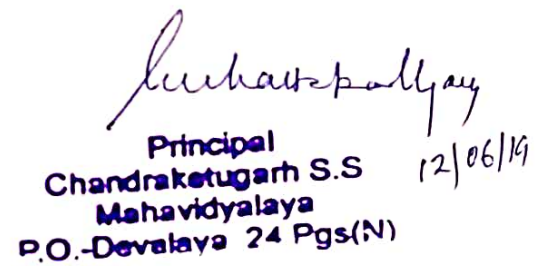 Principal
Chandraketugarh S.S 12/06/19
Mahavidyalaya
P.O.-Devalaya 24 Pgs(N)